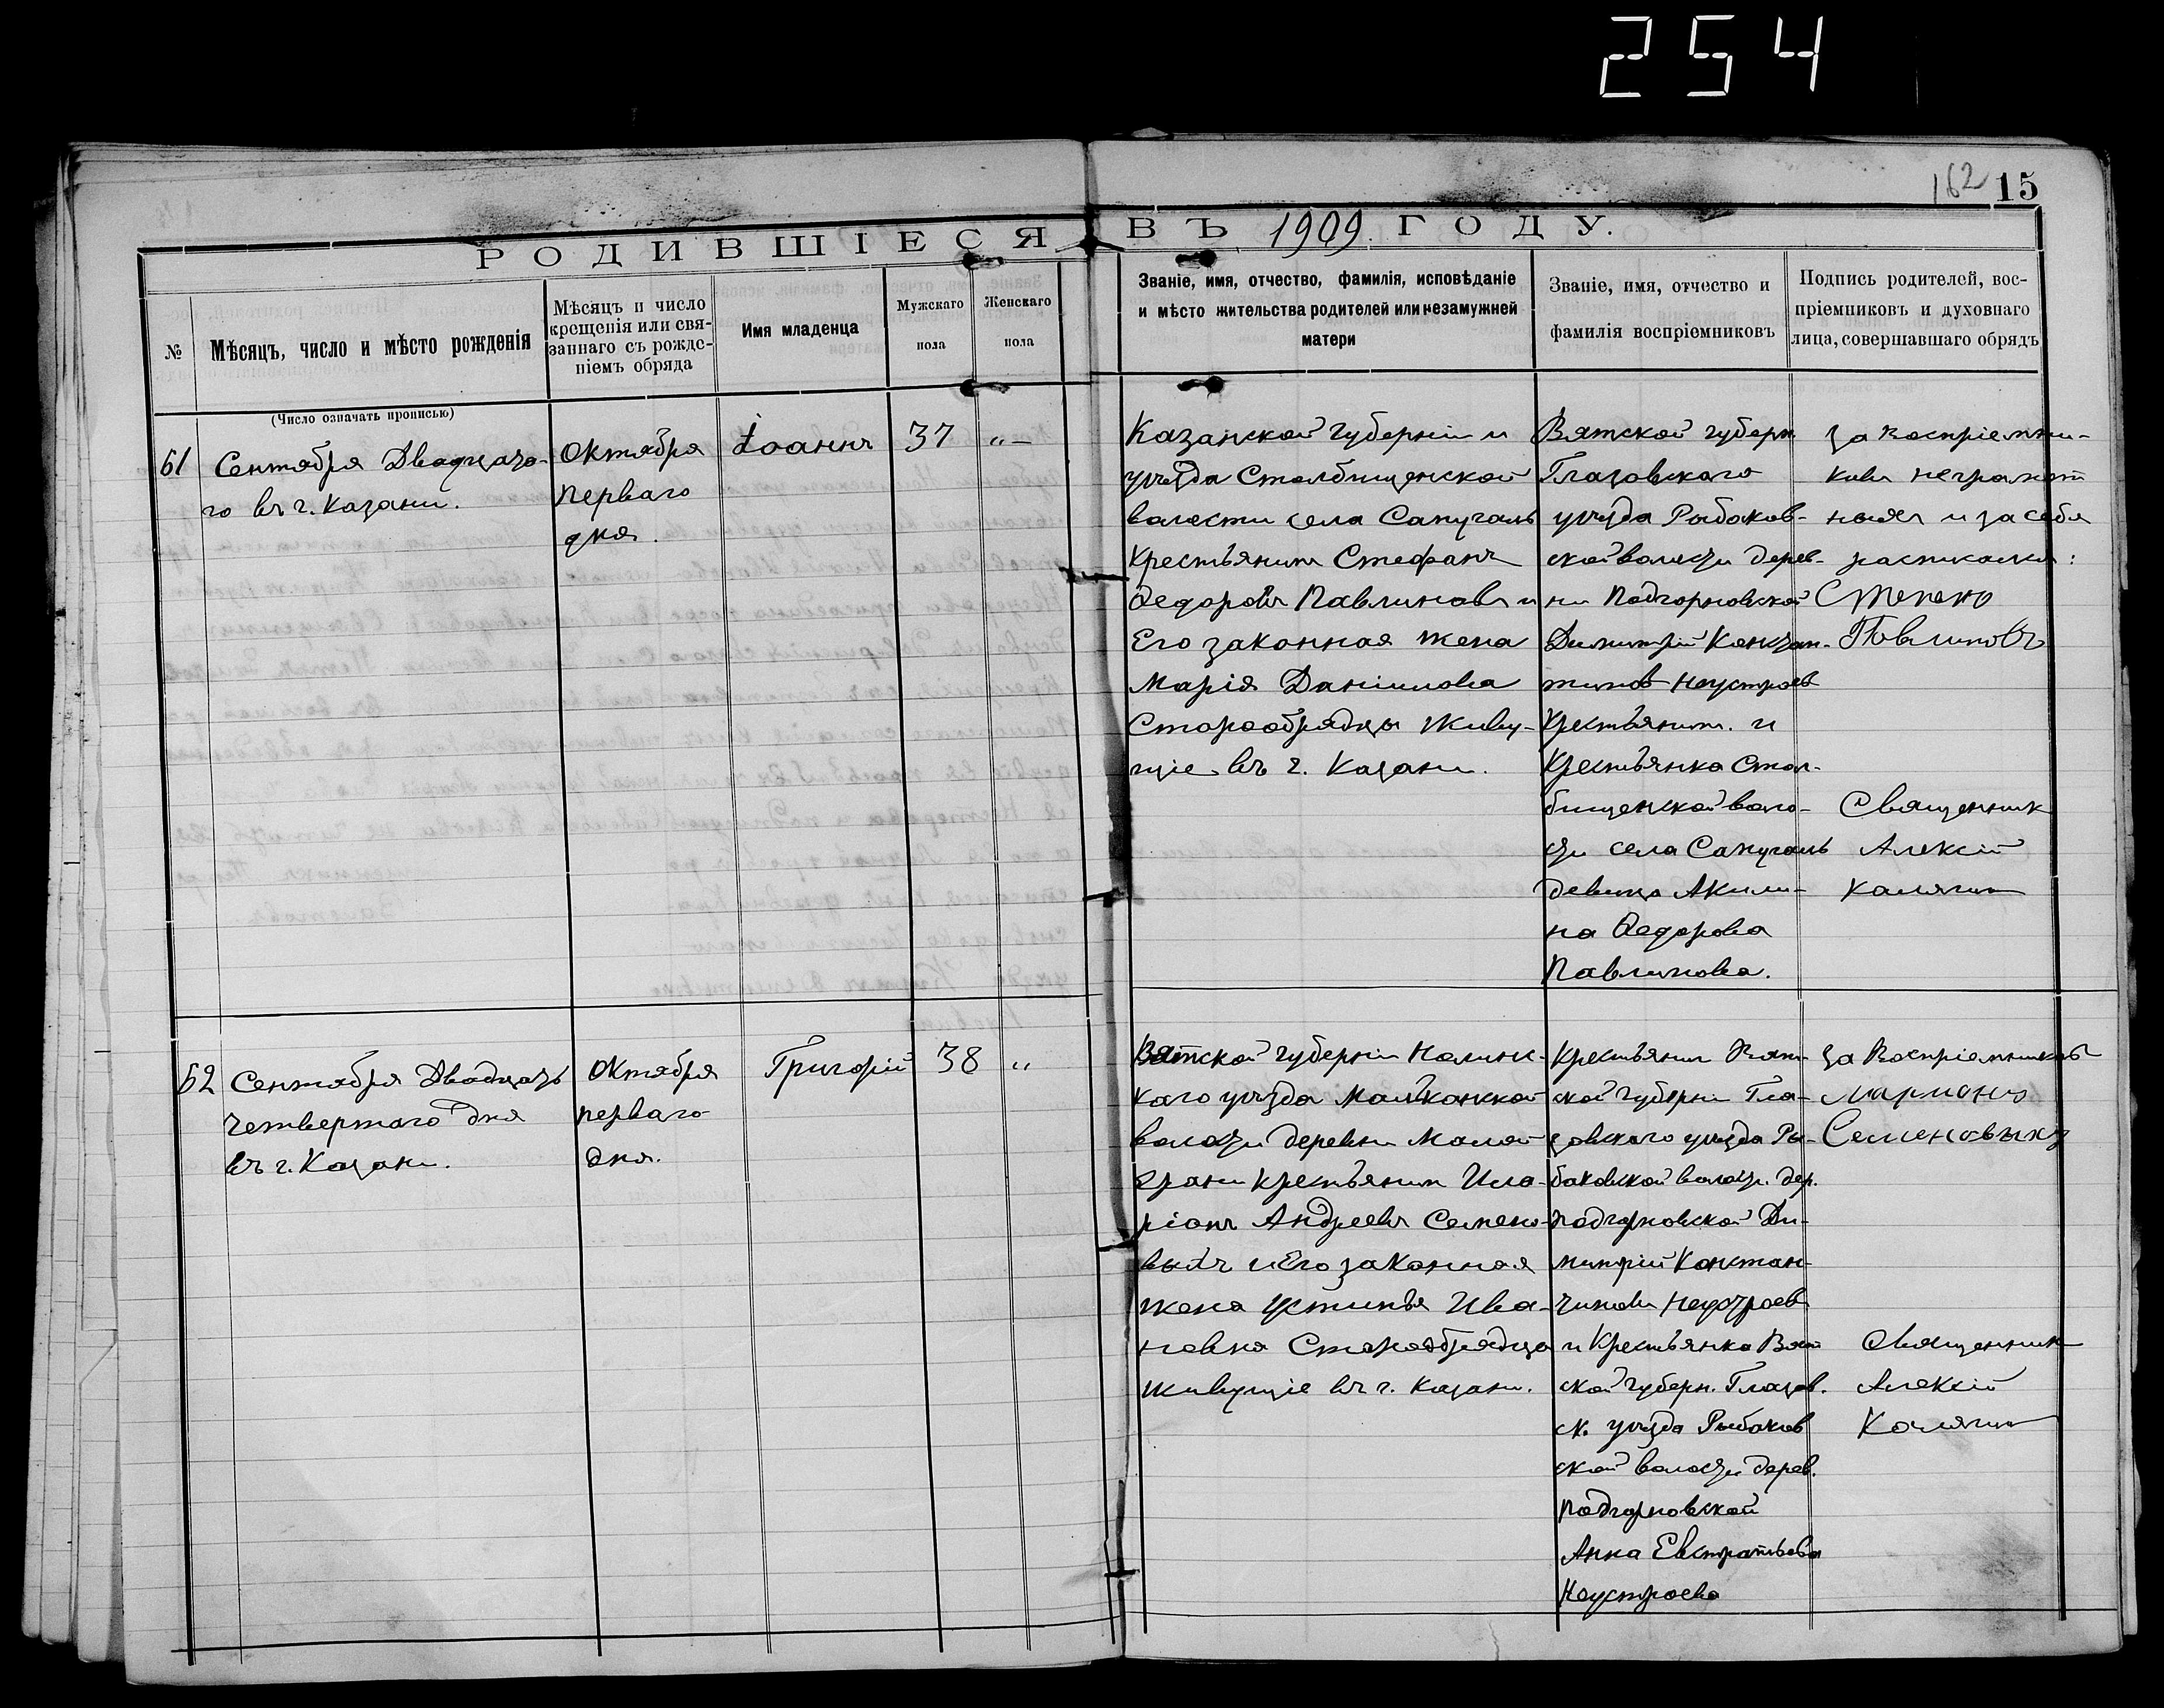 254
162 15
РОДИВШІЕСЯ ВЪ 1909 ГОДУ.
№
Мѣсяцъ, число и мѣсто рожденія
Мѣсяцъ и число
крещенія или свя-
заннаго съ рожде-
ніемъ обряда
Имя младенца
Мужскаго
пола
Женскаго
пола
Званіе, имя, отчество, фамилія, исповѣданіе
и мѣсто жительства родителей или незамужней
матери
Званіе, имя, отчество и
фамилія воспріемниковъ
Подпись родителей, вос-
пріемниковъ и духовнаго
лица, совершавшаго обрядъ
(Число означать прописью)
61
Сентября Двадцато-
го въ г. Казани.
Октября
перваго
дня.
Іоаннъ
37
„ —
Казанской Губерніи и
уѣзда Столбищенской
волости села Сапугаль
Крестьянинъ Стефанъ
Ѳедоровъ Павлиновъ и
Его законная жена
Марія Даніилова
Старообрядцы живу-
щіе въ г. Казани.
Вятской губерн.
Глазовскаго
уѣзда Рыбаков-
ской волости дерев-
ни Подгорновской
Димитрій Констан-
тинов Неустроев
Крестьянинъ. и
Крестьянка Стол-
бищенской воло-
сти села Сапугаль
девица Акили-
на Ѳедорова
Павлинова.
за воспріемни-
ковъ неграмот
ныхъ и за себя
расписался:
Степанъ
Павлиновъ
Священник
Алексій
Калягин
62
Сентября Двадцать
четвертаго дня
въ г. Казани.
Октября
перваго
дня.
Григорій
38
„
Вятской губерніи Нолинс-
каго уѣзда
волости деревни Малой
крестьянин Ила-
ріонъ Андреевъ Семено-
выхъ и Его законная
жена Устинья Ива-
новна Старообрядцы
живущіе въ г. Казани.
Крестьянин Вят-
ской губерніи Гла-
зовскаго уѣзда Ры-
баковской волости. дер.
Подгорновской Ди-
митрій Констан-
тиновъ Неустроев
и Крестьянка Вят
ской губерн. Глазов.
ск. уѣзда Рыбаков
ской волости дерев.
Подгорновской
Анна Евстратьева
Неустроева
за Воспріемниковъ
Ларионъ
Семеновыхъ
Священник
Алексій
Калягин